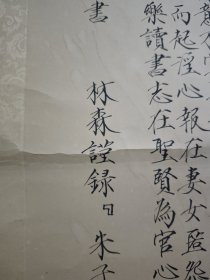 意不
而起淫心報在妻女匿怨
樂讀書志在聖賢為官心
林森謹録 朱子
書